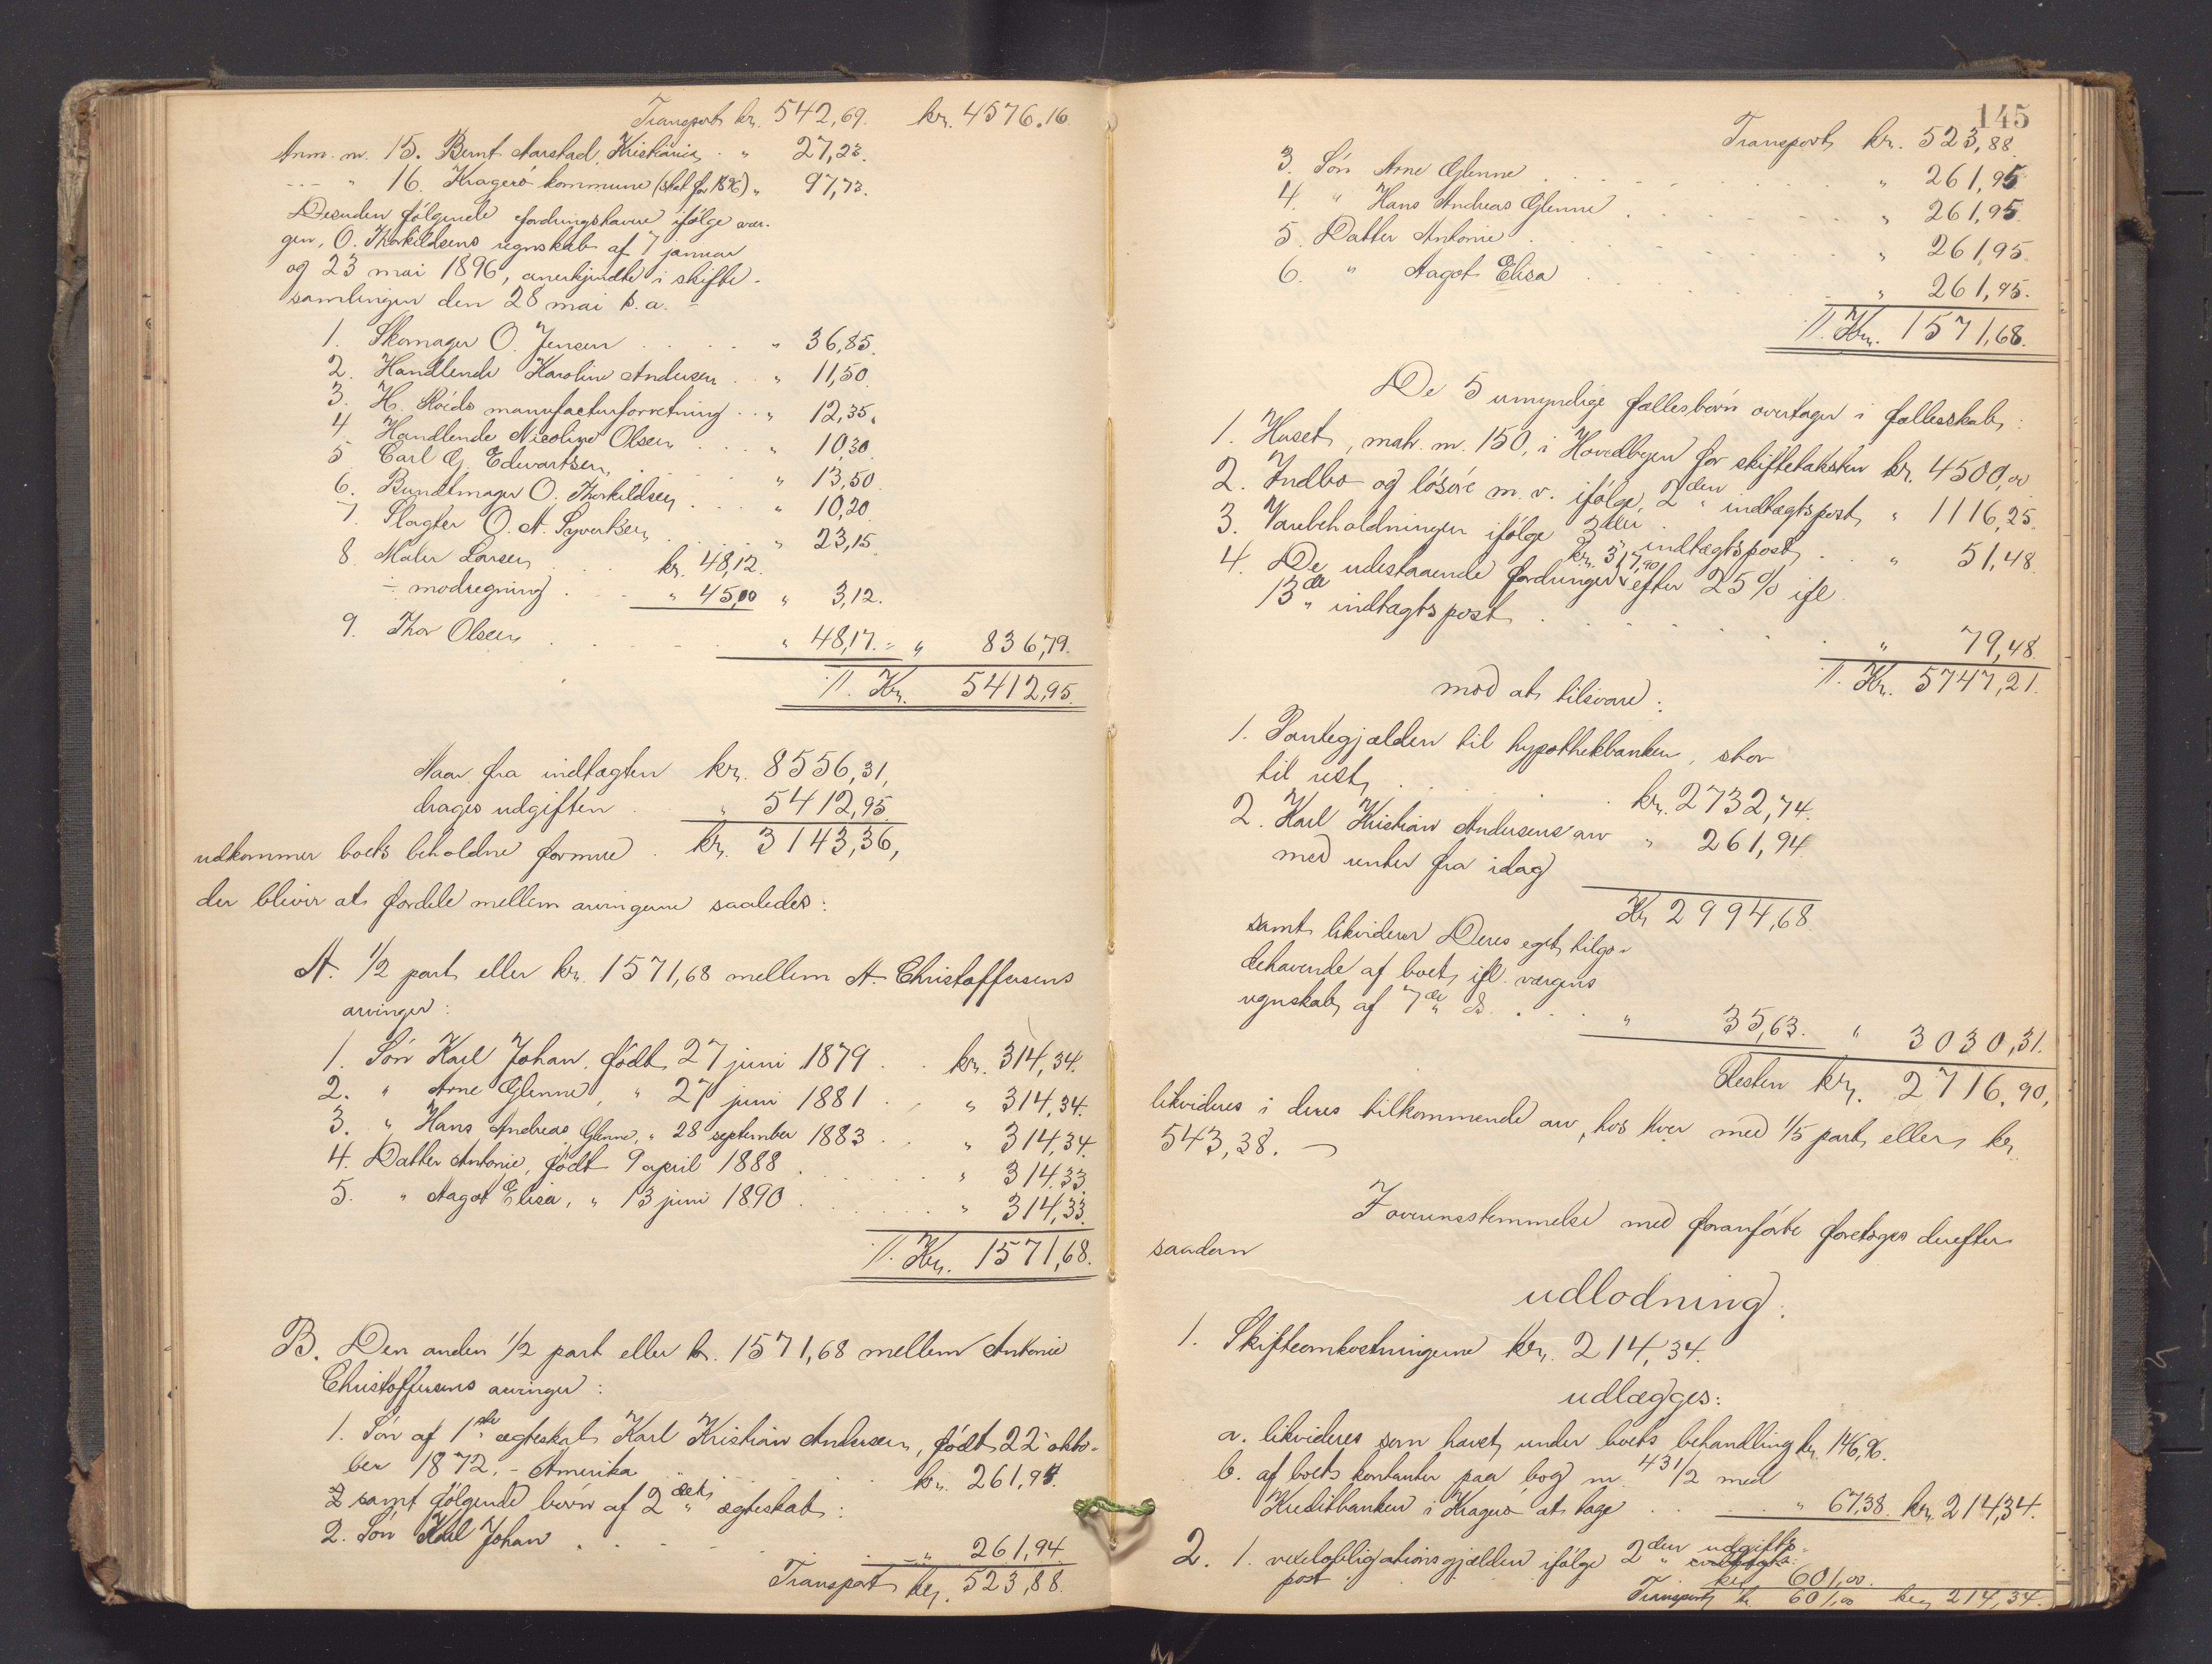 Transport kr. 542,69. kr. 4576.16
Anm. nr. 15. Bernt Aarstad, Kristiania . " 27,23.
--- " 16. Kragerø kommune (skat for 1896) " 97,73.
Desuden følgende fordringshavere ifølge vær-
gen, O. Thorkildsens regnskab af 7 januar
og 23 mai 1896, anerkjendte i skifte-
samlingen den 28 mai s.a. -
1. Skomager O. Jensen . . . . " 36,85.
2. Handlende Karoline Andersen . . " 11,50.
3. H. Röeds manufacturforretning . . " 12,35.
4. Handlende Nicoline Olsen . . . " 10,30.
5. Carl G. Edvartsen, . . . " 13,50.
6. Bundtmager O. Thorkildsen . . . " 10,20.
7. Slagter O. A. Syvertsen . . . . " 23,15.
8. Maler Larsen . . . kr. 48,12.
÷ modregning . . - " 45,00 " 3,12.
9. Thor Olsen . . . . " 48,17. = " 836,79.
Tl. Kr. 5412,95.
Naar fra indtægten kr. 8556,31,
drages udgiften . " 5412,95.
udkommer boets beholdne formue . kr. 3143,36,
der bliver at fordele mellem arvingerne saaledes:
A. 1/2 part eller kr. 1571,68 mellem A. Christoffersens
arvinger:
1. Søn Karl Johan, født 27 juni 1879 . . kr. 314,34.
2. " Arne Glenne, " 27 juni 1881 . . " 314,34.
3. " Hans Andreas Glenne, " 28 september 1883 . . " 314,34.
4. Datter Antonie, født 9 april 1888 . . . . . " 314.33.
5. " Aagot Elisa, " 13 juni 1890 . . . . . . " 314,33.
Tl. Kr. 1571,68.
B. Den anden 1/2 part eller kr. 1571,68 mellem Antonie
Christoffersens arvinger:
1. Søn af 1ste ægteskab Karl Kristian Andersen, født 22 okto-
ber 1872. - Amerika . . . . . kr. 261,94.
samt følgende børn af 2det ægteskab:
2. Søn Karl Johan . . . . . . " 261,94.
Transport kr. 523,88.
145
Transport kr. 523,88.
3. Søn Arne Glenne . . . . . . " 261,95
4. " Hans Andreas Glenne . . . . . " 261,95.
5. Datter Antonie . . . . . . . " 261,95.
6. " Aagot Elisa . . . . . . . " 261,95.
Tl. Kr. 1571,68.
De 5 umyndige fællesbørn overtager i fællesskab:
1. Huset, matr. nr. 150, i Hovedbyen for skiftetaksten kr. 4500,00
2. Indbo og løsøre m. v. ifølge 2den indtægtspost " 1116,25.
3. Varebeholdningen ifølge 3die indtægtspost . . " 51,48.
4. De udestaaende fordringer kr. 317,90 efter 25 % ifl.
13de indtægtspost . . . . . . . " 79,48.
Tl. Kr. 5747,21.
mod at tilsvare:
1. Pantegjælden til hypothekbanken, stor
til rest . . . . . kr. 2732,74.
2. Karl Kristian Andersens arv " 261,94.
med renter fra idag
Kr 2994,68.
samt likviderer Deres eget tilgo-
dehavende af boet ifl. værgens
regnskab af 7de ds. . . . " 35,63. " 3030,31.
Resten kr. 2716.90,
likvideres i deres tilkommende arv, hos hver med 1/5 part eller kr.
543,38.
I overensstemmelse med foranførte foretoges derefter
saadan
udlodning:
1. Skifteomkostningerne kr. 214,34.
udlægges:
a. likvideres som hævet under boets behandling kr. 146,96.
b. af boets kontanter paa bog nr. 431/2 med
Kreditbanken i Kragerø at tage . . . . " 67,38. kr. 214,34.
2. 1. vexelobligationsgjælden ifølge 2den udgifts-
post . . . . . kr. 601,00.
Transport kr. 601,00 kr. 214,34.